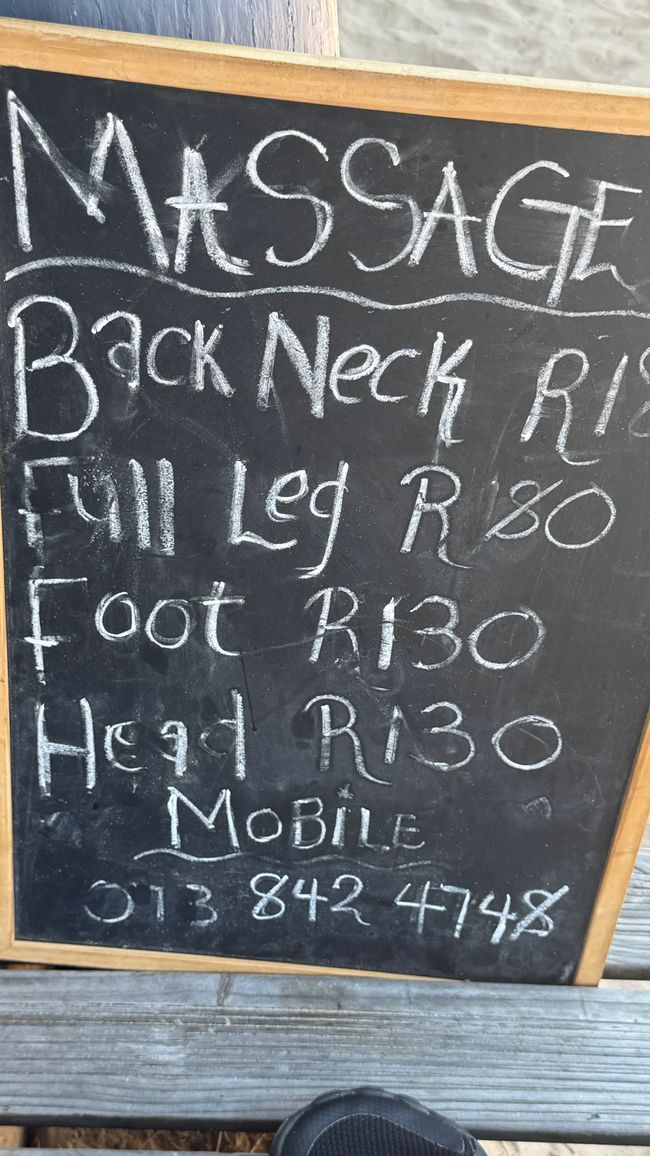 MASSAGE
Back Neck R18
Full Leg R180
Foot R130
Head R130
MOBiLE
073 842 4748